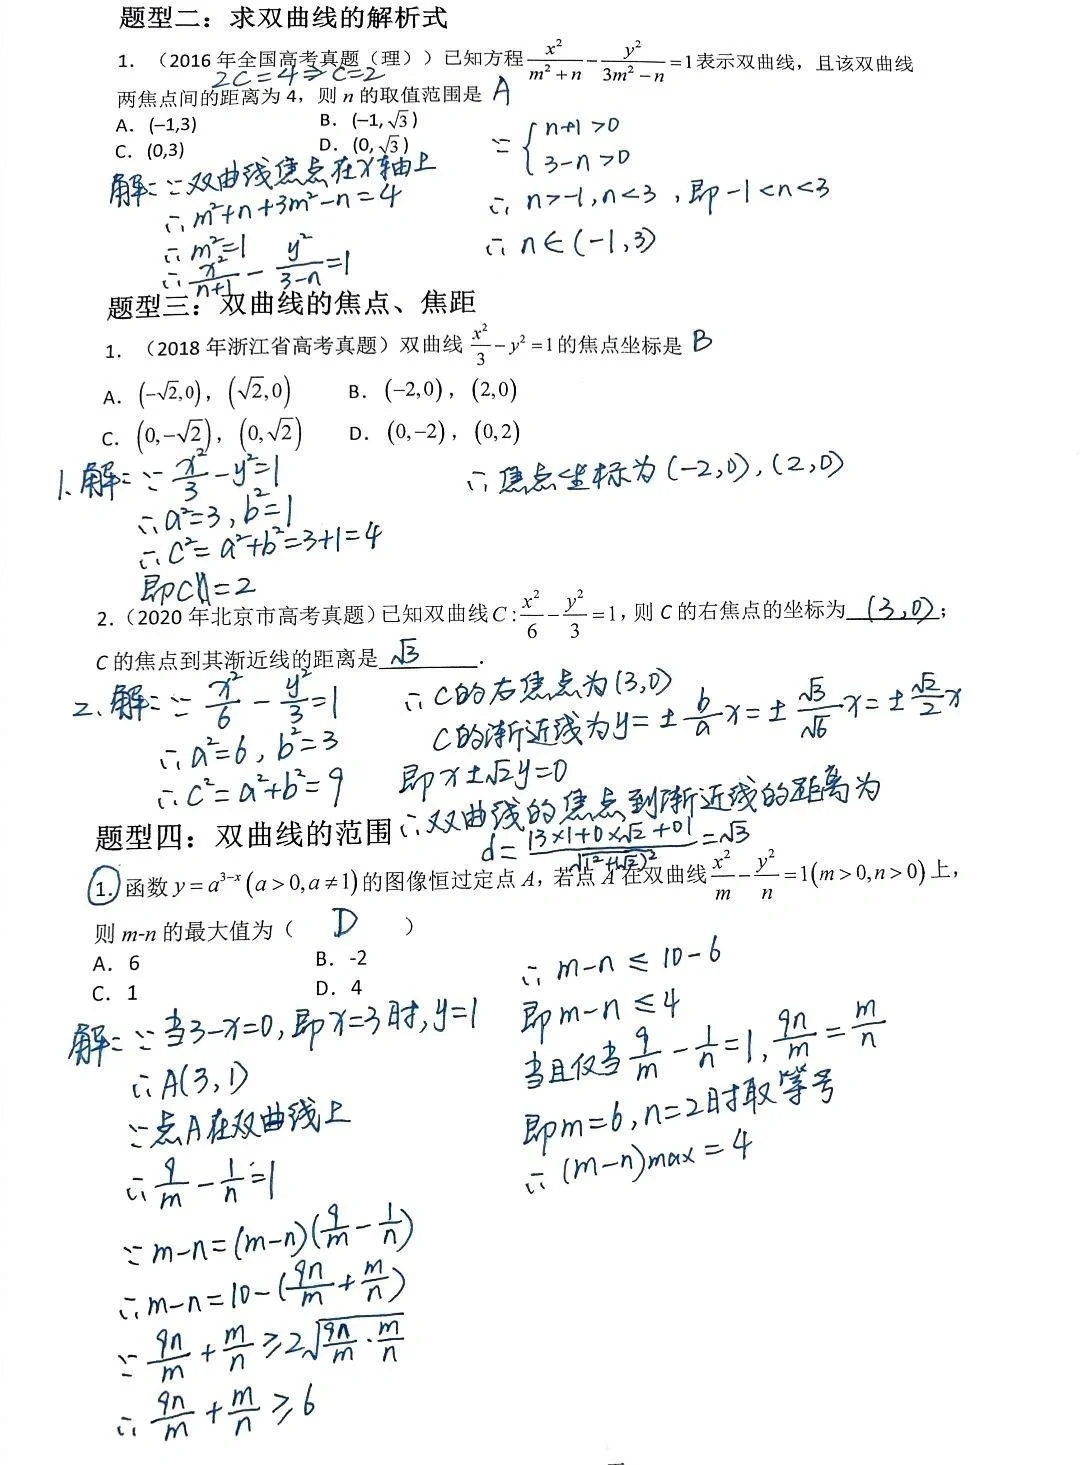 题型二：求双曲线的解析式
1. （2016 年全国高考真题（理））已知方程 x²/(m²+n) − y²/(3m²−n) =1表示双曲线，且该双曲线
2C=4⇒C=2
两焦点间的距离为 4，则 n 的取值范围是 A
A. (−1,3) B. (−1,√3)
C. (0,3) D. (0,√3)
解：∵双曲线焦点在x轴上
∴m²+n+3m²−n=4
∴m²=1
∴x²/(n+1) − y²/(3−n) =1
∵{n+1>0
3−n>0
∴n>−1,n<3，即−1<n<3
∴n∈(−1,3)
题型三：双曲线的焦点、焦距
1. （2018 年浙江省高考真题）双曲线 x²/3 − y² =1的焦点坐标是 B
A. (−√2,0)，(√2,0) B. (−2,0)，(2,0)
C. (0,−√2)，(0,√2) D. (0,−2)，(0,2)
1、解：∵x²/3−y²=1
∴a²=3,b²=1
∴C²=a²+b²=3+1=4
即C=2
∴焦点坐标为(−2,0),(2,0)
2.（2020 年北京市高考真题）已知双曲线C: x²/6 − y²/3 =1，则 C 的右焦点的坐标为 (3,0)；
C 的焦点到其渐近线的距离是 √3 .
2、解：∵x²/6 − y²/3 =1
∴a²=6,b²=3
∴C²=a²+b²=9
∴C的右焦点为(3,0)
C的渐近线为y=±b/a x=±√3/√6 x=±√2/2 x
即x±√2y=0
∴双曲线的焦点到渐近线的距离为
d=|3×1+0×√2+0|/√(1²+(√2)²)=√3
题型四：双曲线的范围
1. 函数 y=a³⁻ˣ(a>0,a≠1)的图像恒过定点 A，若点 A 在双曲线 x²/m − y²/n =1(m>0,n>0)上，
则 m-n 的最大值为（ D ）
A. 6 B. -2
C. 1 D. 4
解：∵当3−x=0,即x=3时,y=1
∴A(3,1)
∵点A在双曲线上
∴9/m − 1/n =1
∵m−n=(m−n)(9/m − 1/n)
∴m−n=10−(9n/m + m/n)
∵9n/m + m/n ≥2√(9n/m · m/n)
∴9n/m + m/n ≥6
∴m−n≤10−6
即m−n≤4
当且仅当9/m − 1/n =1, 9n/m = m/n
即m=6,n=2时取等号
∴(m−n)max=4